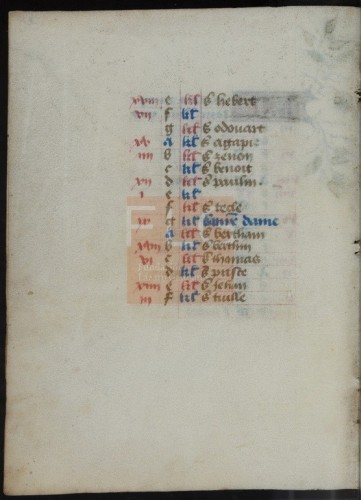 xviii e kl S hebert
vii f kl
g kl S odouart
xv a kl S agapit
iiii b kl S zenon
c kl S benoit
xii d kl S paulin
i e kl
f kl S tecle
ix g kl dame
a kl S bertham
xvii b kl S
vi c kl S thomas
d kl S
xiiii e kl S jehan
iii f kl S tuille